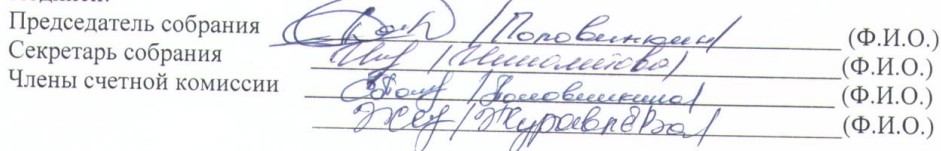 Председатель собрания /Половинкин/ (Ф.И.О.)
Секретарь собрания (Ф.И.О.)
Члены счетной комиссии /Половинкина/ (Ф.И.О.)
/Журавлёва/ (Ф.И.О.)